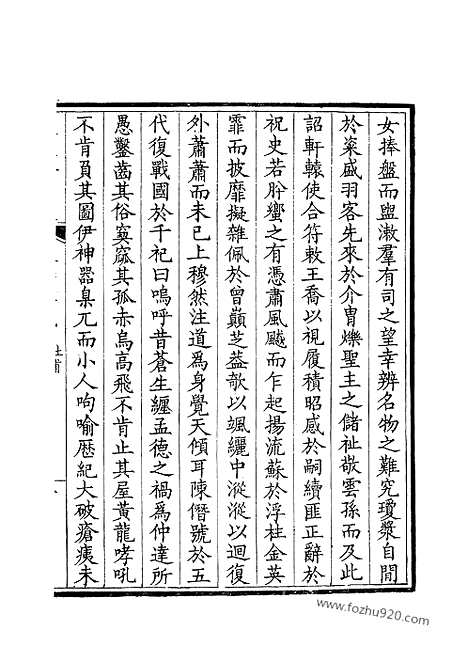 女捧盤而盥漱羣有司之望幸辨名物之難究瓊漿自間
於粢盛羽客先來於介胄爍聖主之儲祉敬雲孫而及此
詔軒轅使合符敕王喬以視履積昭感於嗣續匪正辭於
祝史若肸蠁之有憑肅風飈而乍起揚流蘇於浮柱金英
霏而披靡擬雜佩於曾巔芝葢欹以颯纚中漎漎以迴復
外蕭蕭而未已上穆然注道為身覺天傾耳陳僭號於五
代復戰國於千祀曰嗚呼昔蒼生纒孟德之禍為仲達所
愚鑿齒其俗窫窳其孤赤烏高飛不肯止其屋黃龍哮吼
不肯負其圖伊神器臬兀而小人呴喻歴紀大破瘡痍未
杜甫
www.fozhu920.com